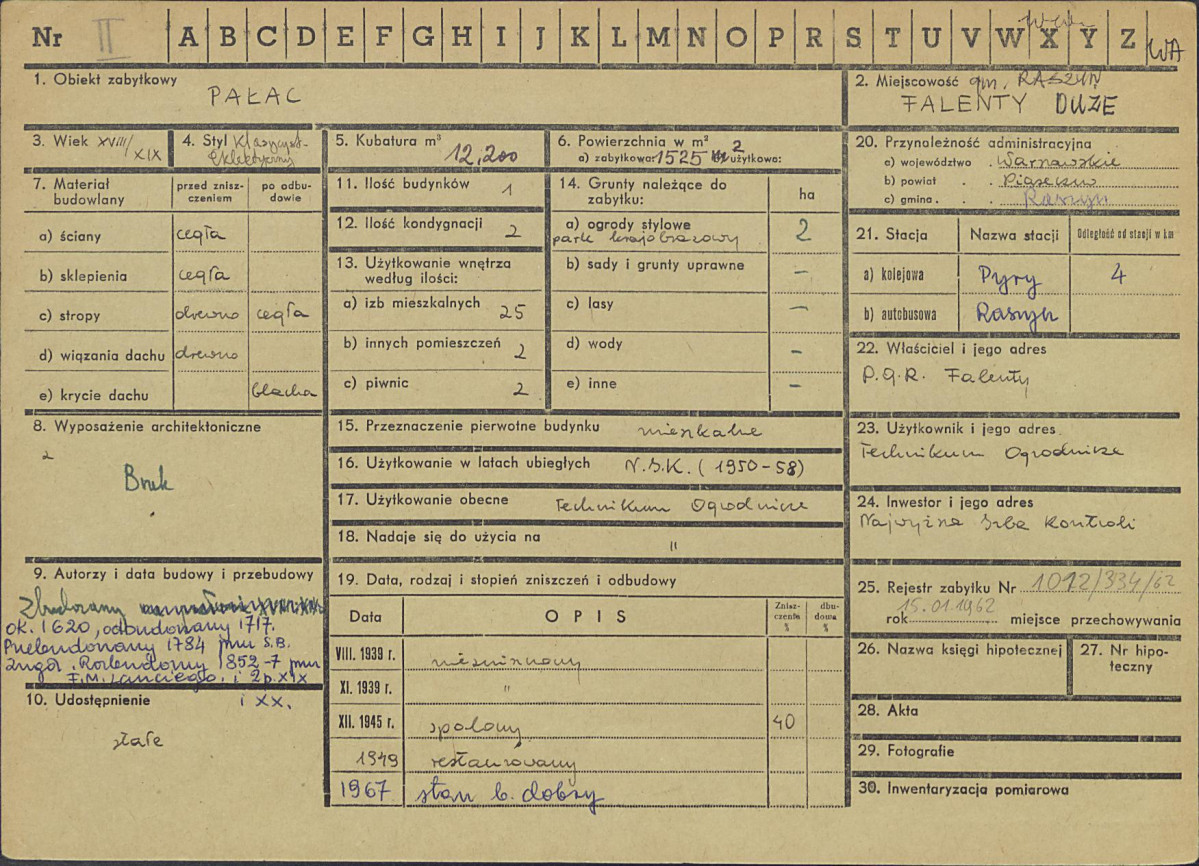 Nr II A B C D E F G H I J K L M N O P R S T U V W X Y Z WA
1. Obiekt zabytkowy
PAŁAC
2. Miejscowość gm. RASZYN
FALENTY DUŻE
3. Wiek XVIII/XIX
4. Styl Klasycyst.
Eklektyczny
5. Kubatura m³
12,200
6. Powierzchnia w m²
a) zabytkowa: 1525 m² użytkowa:
20. Przynoleżność administracyjna
a) województwo . Warszawskie
b) powiat . . Piaseczno
c) gmina . . . Raszyn
7. Materiał budowlany
przed zniszczeniem
po odbudowie
a) ściany cegła
b) sklepienia cegła
c) stropy drewno cegła
d) wiązania dachu drewno
e) krycie dachu blacha
11. Ilość budynków 1
12. Ilość kondygnacji 2
13. Użytkowanie wnętrza
według ilości:
a) izb mieszkalnych 25
b) innych pomieszczeń 2
c) piwnic 2
14. Grunty należące do
zabytku:
ha
a) ogrody stylowe
park krajobrazowy 2
b) sady i grunty uprawne –
c) lasy –
d) wody –
e) inne –
21. Stacja Nazwa stacji Odległość od stacji w km
a) kolejowa Pyry 4
b) autobusowa Raszyn
22. Właściciel i jego adres
P.G.R. Falenty
8. Wyposażenie architektoniczne
Brak
15. Przeznaczenie pierwotne budynku mieszkalne
16. Użytkowanie w latach ubiegłych N.I.K. (1950-58)
17. Użytkowanie obecne Technikum Ogrodnicze
18. Nadaje się do użycia na "
23. Użytkownik i jego adres
Technikum Ogrodnicze
24. Inwestor i jego adres
Najwyższa Izba Kontroli
9. Autorzy i data budowy i przebudowy
Zbudowany
ok. 1620, odbudowany 1717.
Przebudowany 1784 przez S.B.
Zuga. Rozbudowany 1852-7 przez
F.M. Lanciego. i 2p. XIX
i XX.
10. Udostępnienie
stałe
19. Data, rodzaj i stopień zniszczeń i odbudowy
Data OPIS Zniszczenia % dbudowa %
VIII. 1939 r. niezniszczony
XI. 1939 r. "
XII. 1945 r. spalony 40
1949 restaurowany
1967 stan b. dobry
25. Rejestr zabytku Nr 1012/334/62
15.01.1962
rok miejsce przechowywania
26. Nazwa księgi hipotecznej
27. Nr hipoteczny
28. Akta
29. Fotografie
30. Inwentaryzacja pomiarowa